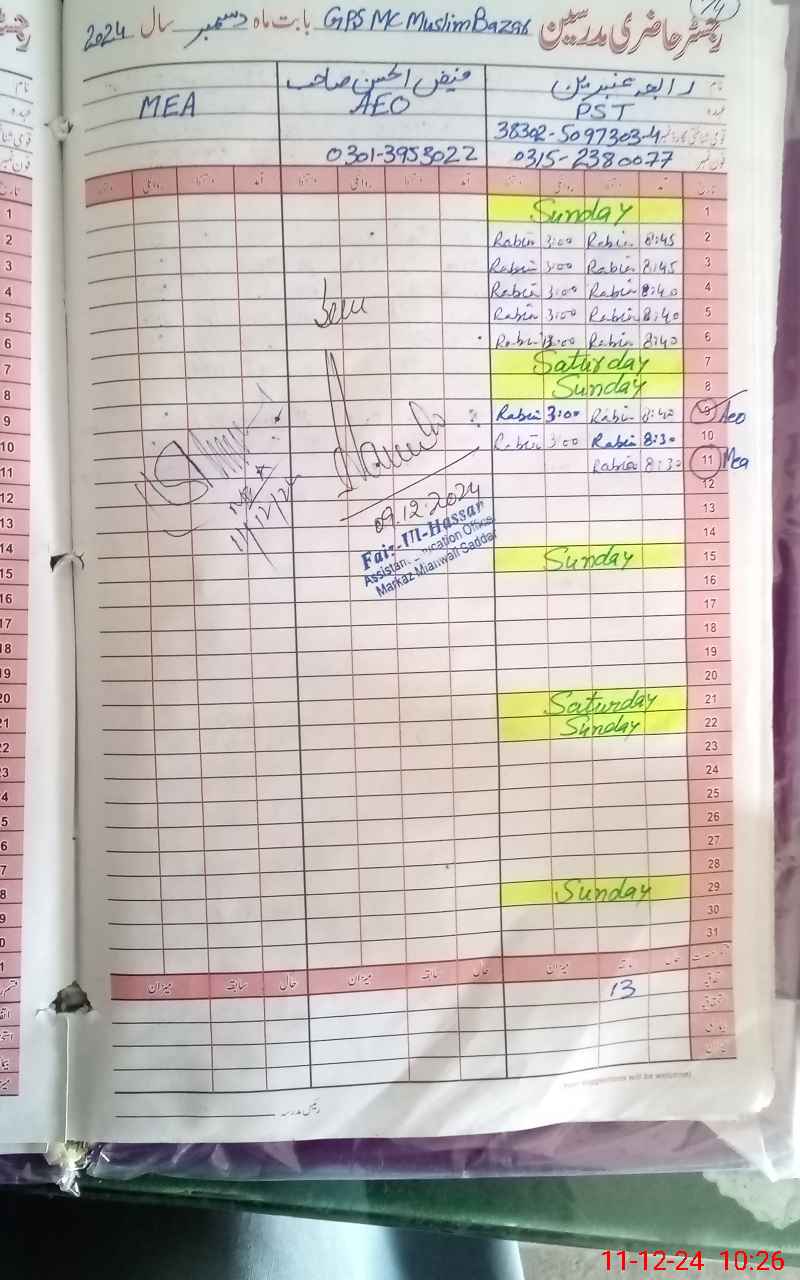 رجسٹر حاضری مدرسین GPS MC Muslim Bazar بابت ماہ دسمبر سال 2024
نام رابعہ عنبرین فیض الحسن صاحب
عہدہ PST AEO MEA
38302-5097303-4
فون نمبر 0315-2380077 0301-3953022
تاریخ آمد روانگی آمد روانگی آمد روانگی
1 Sunday
2 8:45 Rabia 3:00 Rabia
3 8:45 Rabia 3:00 Rabia
4 8:40 Rabia 3:00 Rabia
5 8:40 Rabia 3:00 Rabia
6 8:40 Rabia Rabia
7 Saturday
8 Sunday
9 8:40 Rabia 3:00 Rabia Aeo
10 8:30 Rabia 3:00 Rabia
11 8:30 Rabia Mea
12
13
14
15 Sunday
16
17
18
19
20
21 Saturday
22 Sunday
23
24
25
26
27
28
29 Sunday
30
31
09.12.2024
Faiz-Ul-Hassan
Assistant Education Officer
Markaz Mianwali Saddar
11/12/24
حال سابقہ میزان حال سابقہ میزان حال سابقہ میزان
13
رئیس مدرسہ
11-12-24 10:26